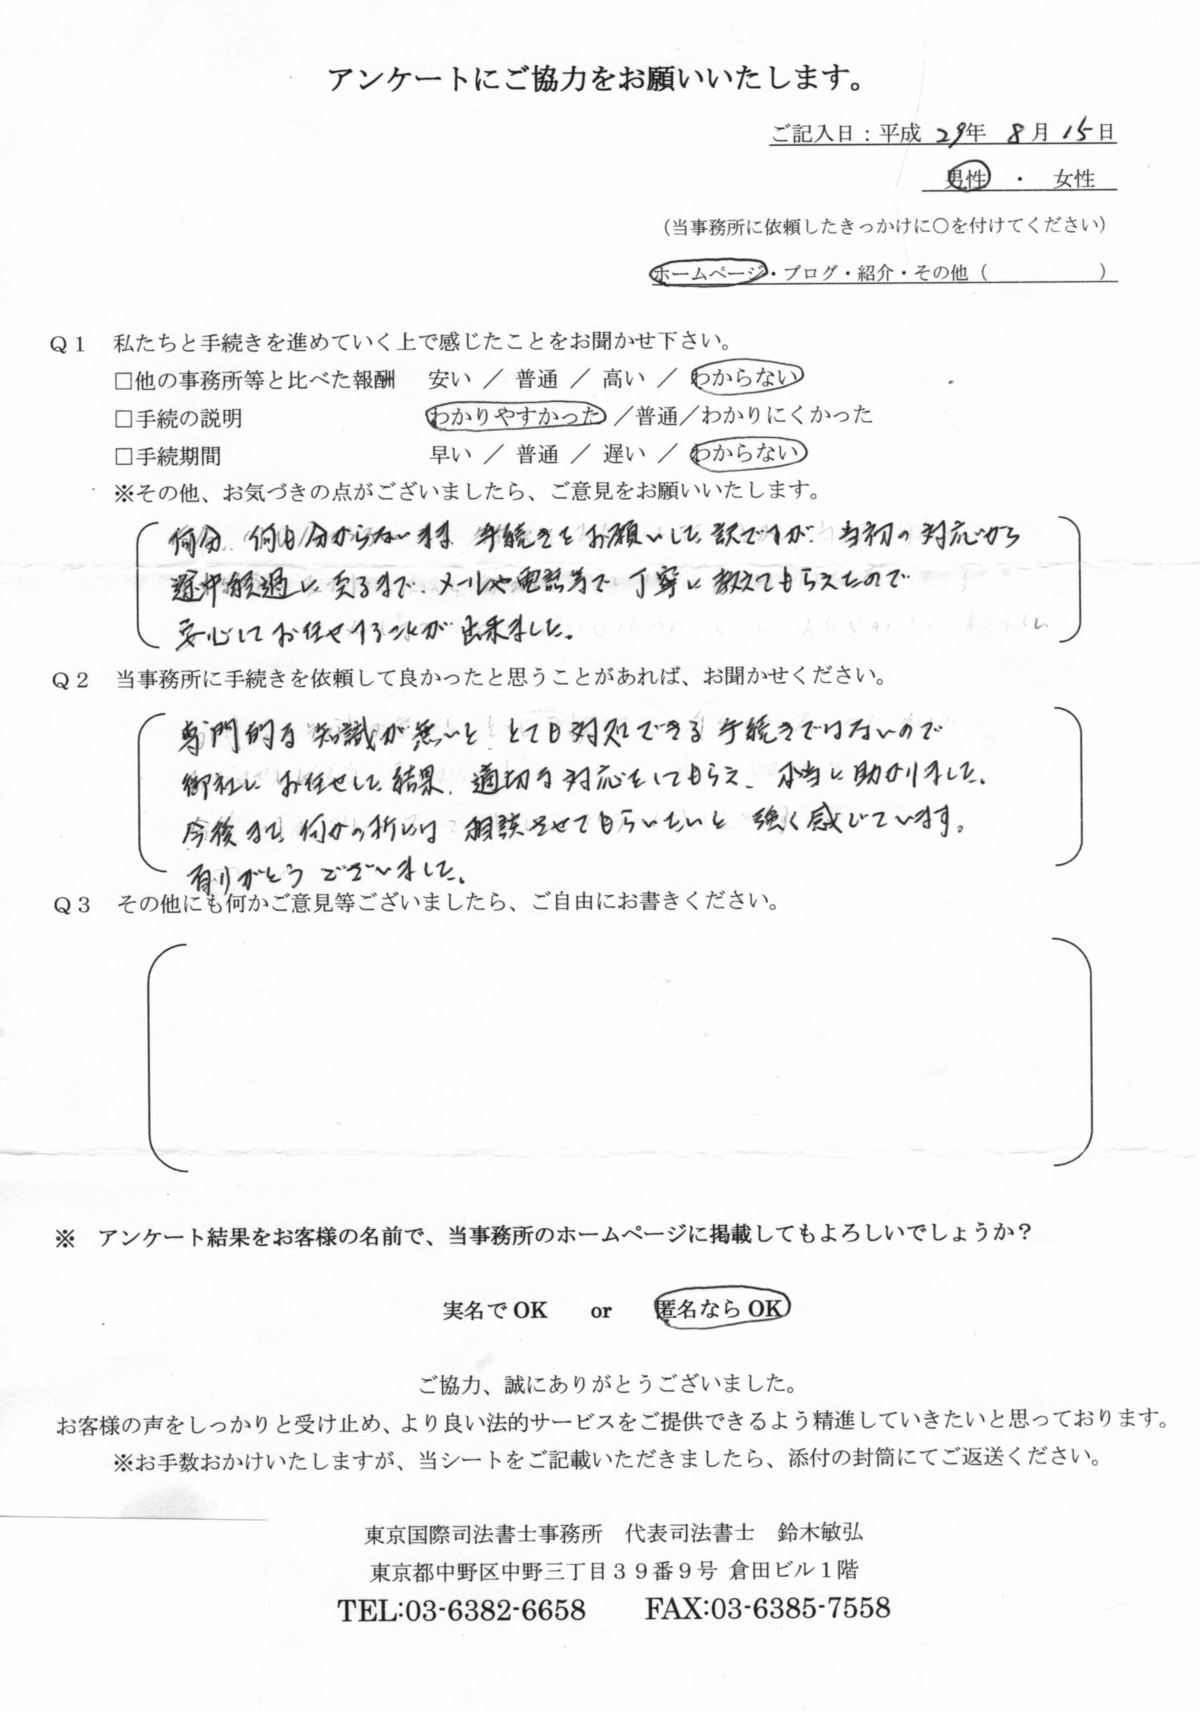 アンケートにご協力をお願いいたします。
ご記入日：平成 29年 8月 15日
男性 ・ 女性
（当事務所に依頼したきっかけに○を付けてください）
ホームページ・ブログ・紹介・その他（　　　　　）
Ｑ１　私たちと手続きを進めていく上で感じたことをお聞かせ下さい。
□他の事務所等と比べた報酬　安い ／ 普通 ／ 高い ／ わからない
□手続の説明　わかりやすかった ／普通／わかりにくかった
□手続期間　早い ／ 普通 ／ 遅い ／ わからない
※その他、お気づきの点がございましたら、ご意見をお願いいたします。
何分、何も分からないまま 手続きをお願いした訳ですが、当初の対応から
途中経過に至るまで、メールや電話等で 丁寧に教えてもらえたので
安心してお任せすることが出来ました。
Ｑ２　当事務所に手続きを依頼して良かったと思うことがあれば、お聞かせください。
専門的な知識が無いと とても対処できる手続きではないので
御社にお任せした結果、適切な対応をしてもらえ、本当に助かりました。
今後また何かの折には 相談させてもらいたいと 強く感じています。
有りがとうございました。
Ｑ３　その他にも何かご意見等ございましたら、ご自由にお書きください。
※　アンケート結果をお客様の名前で、当事務所のホームページに掲載してもよろしいでしょうか？
実名で OK　or　匿名なら OK
ご協力、誠にありがとうございました。
お客様の声をしっかりと受け止め、より良い法的サービスをご提供できるよう精進していきたいと思っております。
※お手数おかけいたしますが、当シートをご記載いただきましたら、添付の封筒にてご返送ください。
東京国際司法書士事務所　代表司法書士　鈴木敏弘
東京都中野区中野三丁目３９番９号 倉田ビル１階
TEL:03-6382-6658　FAX:03-6385-7558